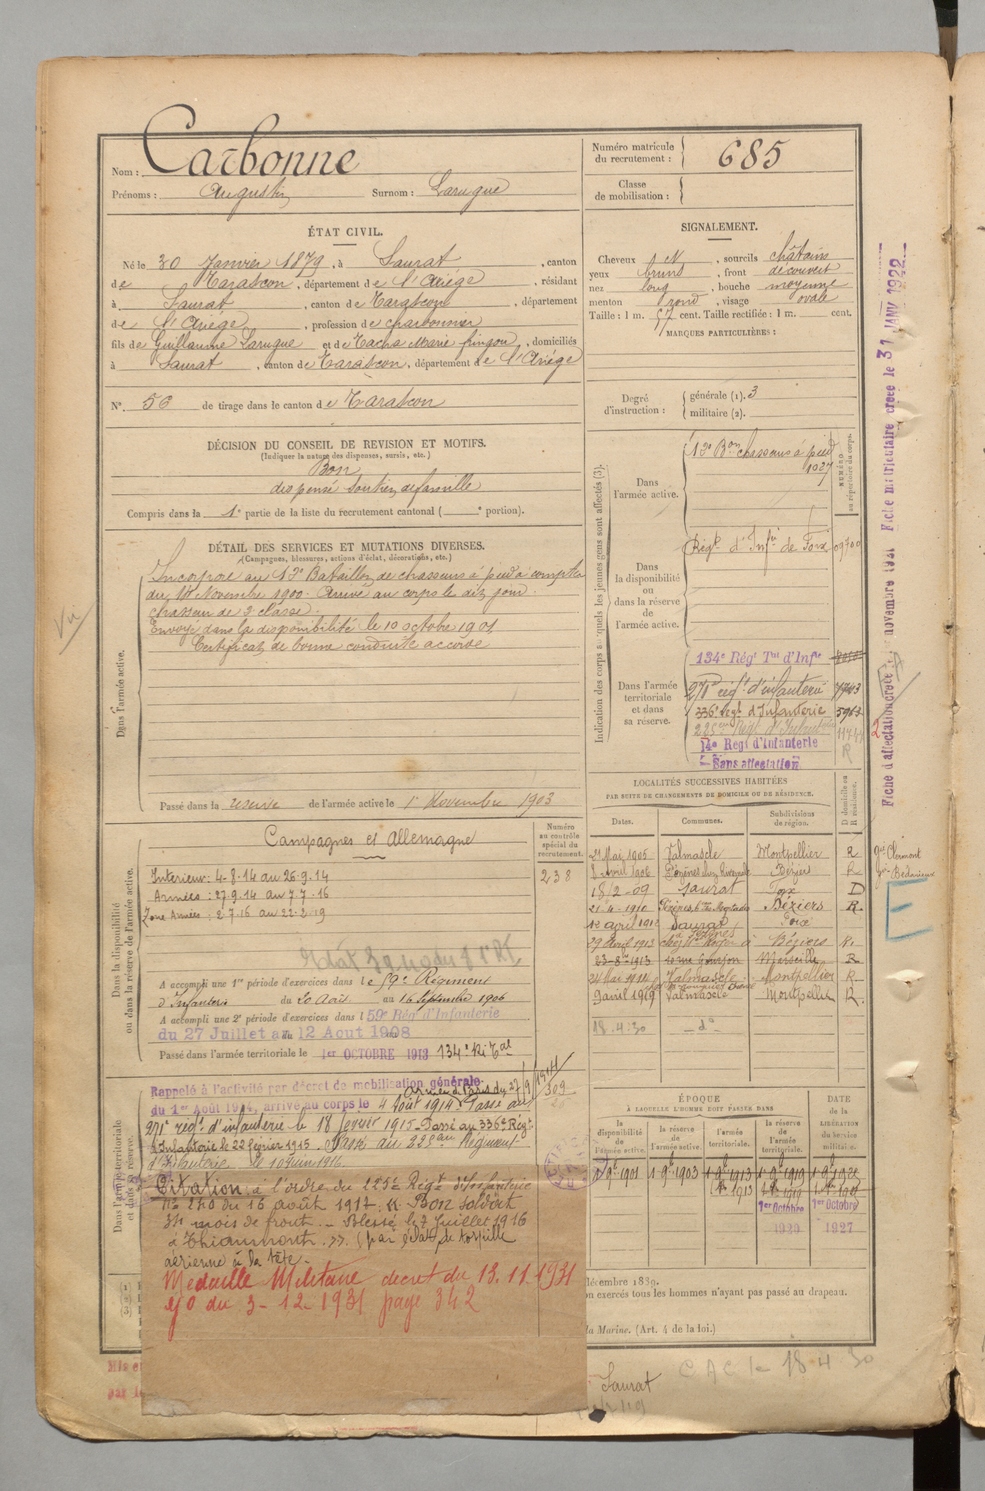 Nom : Carbonne
Prénoms : Augustin Surnom : Larugue
Numéro matricule
du recrutement : 685
Classe
de mobilisation :
ÉTAT CIVIL.
Né le 30 Janvier 1879, à Saurat, canton
de Tarascon, département de l'Ariége, résidant
à Saurat, canton de Tarascon, département
de l'Ariége, profession de charbonnier
fils de Guillaume Larugue et de Marie, domiciliés
à Saurat, canton de Tarascon, département de l'Ariége
N°. 56 de tirage dans le canton de Tarascon
SIGNALEMENT.
Cheveux N, sourcils châtains
yeux bruns, front découvert
nez long, bouche moyenne
menton rond, visage ovale
Taille : 1 m. 67 cent. Taille rectifiée : 1 m. cent.
MARQUES PARTICULIÈRES :
Degré
d'instruction :
générale (1). 3
militaire (2).
DÉCISION DU CONSEIL DE REVISION ET MOTIFS.
(Indiquer la nature des dispenses, sursis, etc.)
Bon
dispensé Soutien de famille
Compris dans la 1e partie de la liste du recrutement cantonal ( e portion).
DÉTAIL DES SERVICES ET MUTATIONS DIVERSES.
(Campagnes, blessures, actions d'éclat, décorations, etc.)
Dans l'armée active.
Incorporé au 13e Bataillon de chasseurs à pied à compter
du 14 Novembre 1900. Arrivé au corps le dit jour.
chasseur de 2e classe.
Envoyé dans la disponibilité le 10 octobre 1901
Certificat de bonne conduite accordé
Passé dans la réserve de l'armée active le 1er Novembre 1903
Vu
Indication des corps auxquels les jeunes gens sont affectés (3).
NUMÉRO
au répertoire du corps.
Dans
l'armée active.
13e Bon chasseurs à pied
1027
Dans
la disponibilité
ou
dans la réserve
de
l'armée active.
Régt d'Infie de Foix
Dans l'armée
territoriale
et dans
sa réserve.
134e Régt Tal d'Infie
271e régt d'infanterie
336e régt d'Infanterie 5963
225me Régt d'Infanterie
14e Regt d'Infanterie
Sans affectation
LOCALITÉS SUCCESSIVES HABITÉES
PAR SUITE DE CHANGEMENTS DE DOMICILE OU DE RÉSIDENCE.
Dates. Communes. Subdivisions
de région.
D domicile ou
R résidence.
21 Mai 1905 Valmascle Montpellier R
Avril 1906 Béziers R
18/2-09 Saurat Foix D
21-4-1910 Béziers R
12 avril 1912 Saurat Foix
29 Avril 1913 Béziers R.
23-8-1913 Marseille R
Mai 1914 Valmascle Montpellier R
9 avril 1919 Valmascle Montpellier R.
18.4.30 — do
Dans la disponibilité
ou dans la réserve de l'armée active.
Campagnes et Allemagne
Numéro
au contrôle
spécial du
recrutement.
238
Intérieur : 4-8-14 au 26-9-14
Armées : 27-9-14 au 7-7-16
Zone Armées : 8-7-16 au 22-2-19
A accompli une 1re période d'exercices dans le 59e Régiment
d'Infanterie du 20 Août au 16 Septembre 1906
A accompli une 2e période d'exercices dans l 59e Rég d'Infanterie
du 27 Juillet au 12 Aout 1908
Passé dans l'armée territoriale le 1er OCTOBRE 1913 134e Ri Tal
Dans l'armée territoriale
et dans sa réserve.
Rappelé à l'activité par décret de mobilisation générale
du 1er Août 1914, arrivé au corps le 4 Août 1914. Passé au
271e régt d'infanterie le 18 février 1915. Passé au 336e Régt
d'Infanterie le 22 février 1915. Passé au 225me Régiment
d'Infanterie le 10 Juin 1916
Citation à l'ordre du 225e Régt d'Infanterie
N° 240 du 16 août 1917. « Bon soldat
34 mois de front. – Blessé le 7 Juillet 1916
à Thiaumont. » (par éclat de torpille
aérienne à la tête.
Médaille Militaire décret du 13.11.1931
JO du 3-12-1931 page 342
ÉPOQUE
À LAQUELLE L'HOMME DOIT PASSER DANS
la
disponibilité
de
l'armée active.
la
réserve de
l'armée active.
l'armée
territoriale.
la
réserve
de
l'armée
territoriale.
DATE
de la
LIBÉRATION
du service
militaire.
1903 1913
1er Octobre 1er Octobre
1927
décembre 1889.
on exercés tous les hommes n'ayant pas passé au drapeau.
la Marine. (Art. 4 de la loi.)
Saurat
CAC. le 18 4 30
Fiche matriculaire créée le 31 JANV 1922
Fiche d'affectation créée novembre 1931